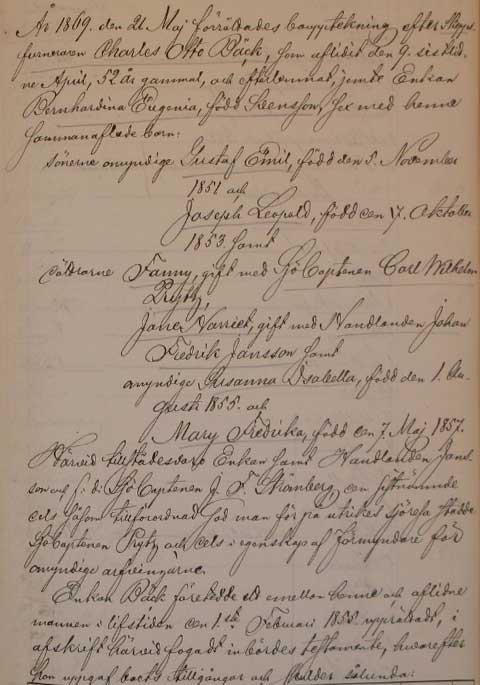 År 1869 den 21 Maj förrättades bouppteckning efter Skepps-
furneraren Charles Otto Bäck, som aflidit den 9 sistlid-
ne April, 52 år gammal, och efterlemnat, jemte Enkan
Bernhardina Eugenia, född Svensson, sex med henne
sammanaflade barn:
sönerne omyndige Gustaf Emil, född den 5. November
1851 och
Joseph Leopold, född den 17. Oktober
1853 samt
döttrarne Fanny, gift med SjöCaptenen Carl Wilhelm
Prytz,
Jane Harriet, gift med Handlanden Johan
Fredrik Jansson samt
omyndige Susanna Isabella, född den 1. Au-
gusti 1855 och
Mary Fredrika, född den 7. Maj 1857.
Härvid tillstädesvaro Enkan samt Handlanden Jans-
son och f. d. SjöCaptenen J. F. Strömberg, den sistnämnde
dels såsom tillförordnad god man för på utrikes sjöresa stadde
SjöCaptenen Prytz och dels i egenskap af Förmyndare för
omyndige arfvingarne.
Enkan Bäck företedde ett emellan henne och aflidne
mannen i lifstiden den 1.sta Februari 1858 upprättadt, i
afskrift härvid fogadt inbördes testamente, hvarefter
hon uppgaf boets tillgångar och skulder sålunda: